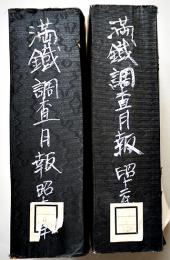 滿鐵調査月報 昭十二年
滿鐵調査月報 昭